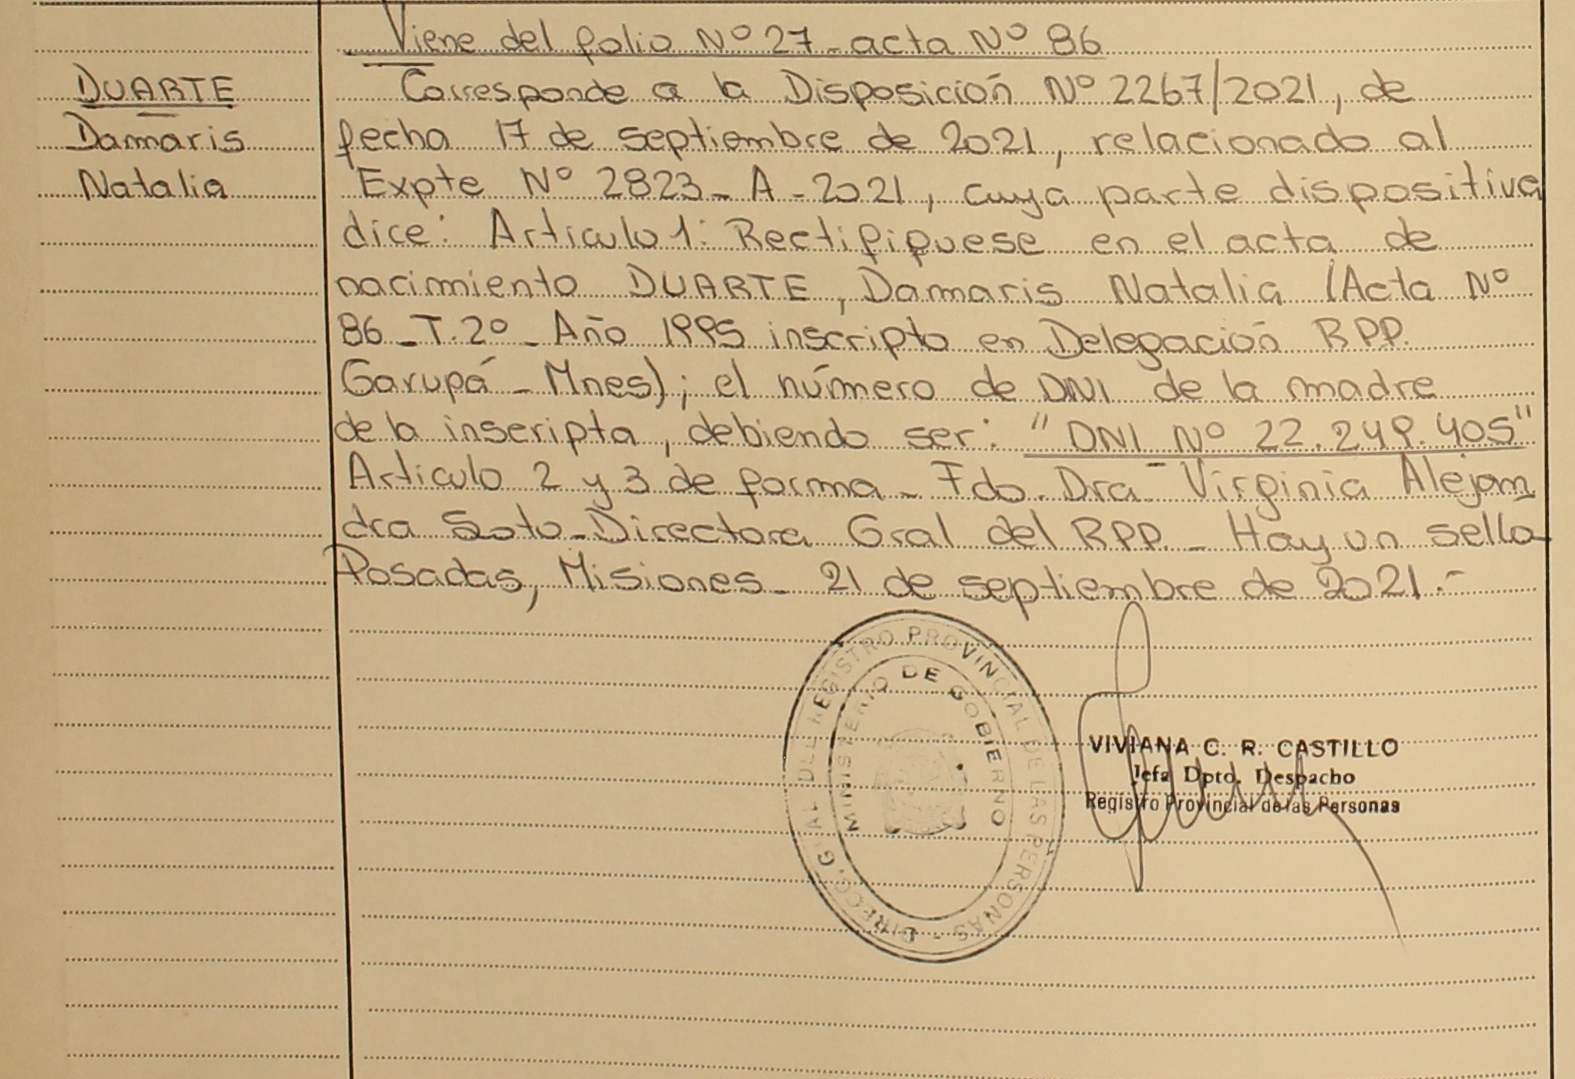 Viene del folio Nº 27 - acta Nº 86
DUARTE
Damaris
Natalia
Corresponde a la Disposición Nº 2267/2021, de
fecha 17 de septiembre de 2021, relacionado al
Expte Nº 2823 - A - 2021, cuya parte dispositiva
dice: Articulo 1: Rectifiquese en el acta de
nacimiento DUARTE, Damaris Natalia (Acta Nº
86 - T. 2º - Año 1995 inscripto en Delegación RPP.
Garupá - Mnes); el número de DNI de la madre
de la inscripta, debiendo ser: "DNI Nº 22.249.405"
Articulo 2 y 3 de forma - Fdo. Dra Virginia Alejan
dra Soto - Directora Gral del RPP. - Hay un sello
Posadas, Misiones - 21 de septiembre de 2021.-
DIRECC. GRAL DEL REGISTRO PROVINCIAL DE LAS PERSONAS -
MINISTERIO DE GOBIERNO
VIVIANA C. R. CASTILLO
Jefa Dpto. Despacho
Registro Provincial de las Personas